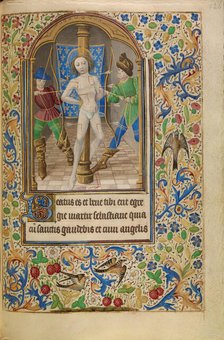 Beatus es et bene tibi erit egre
gie martir sebastiane quia
cū sanctis gaudebis et cum angelis